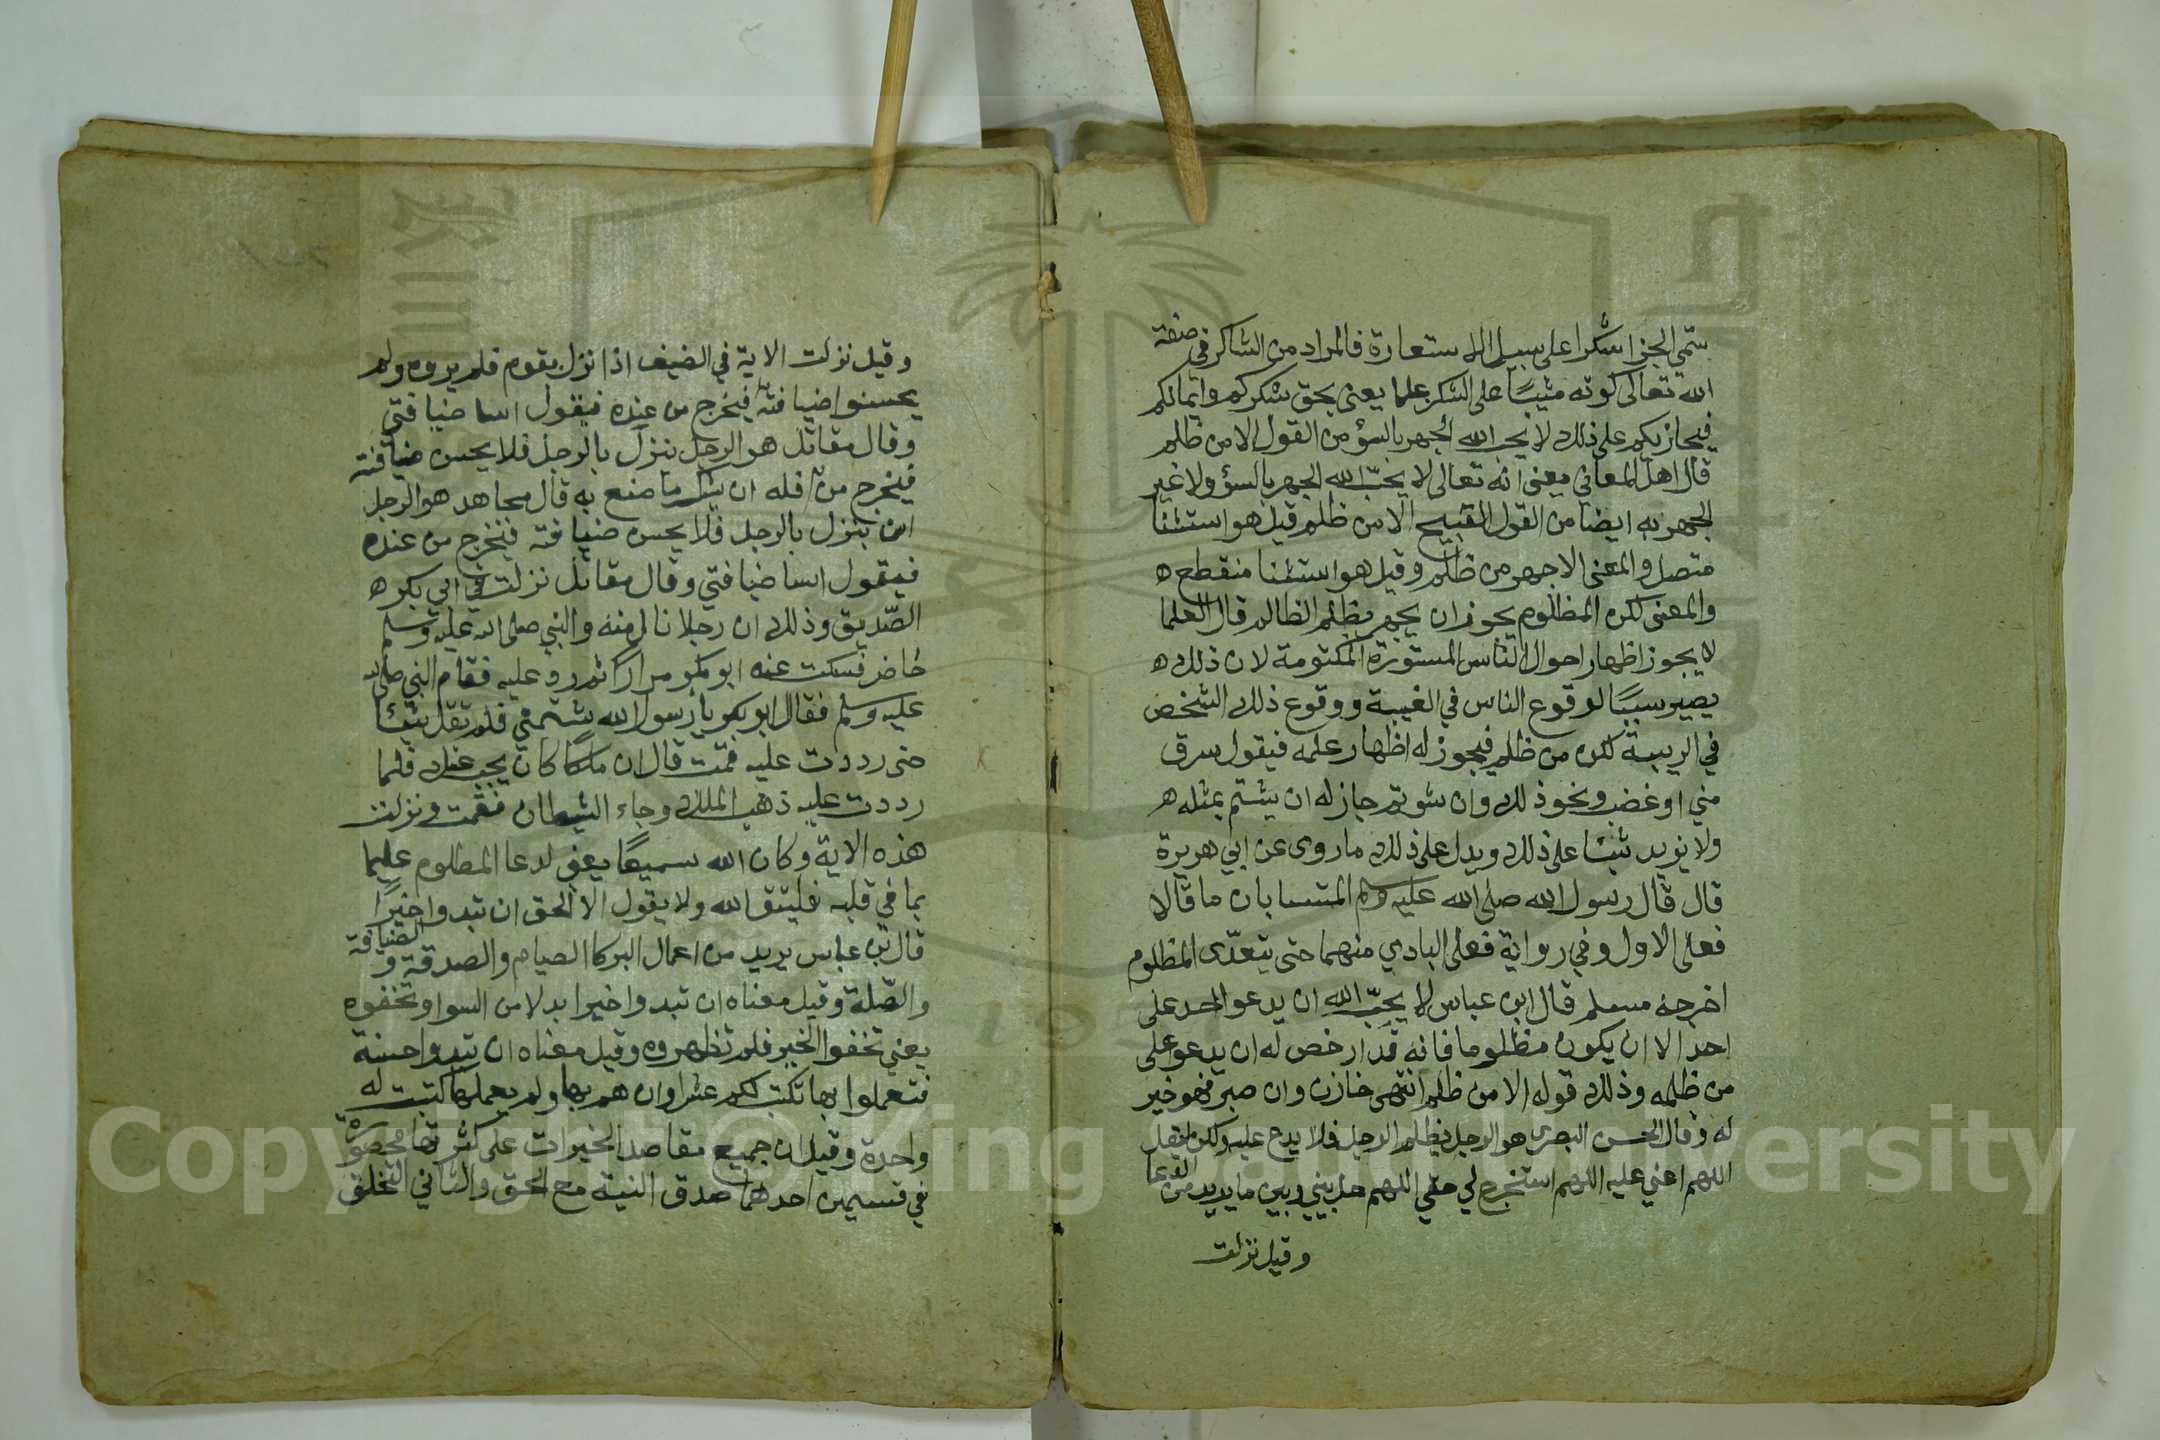 سمى الجزا شكرا على سبيل الاستعارة فالمراد من الشاكر في صفة
الله تعالى كونه مثيبًا على الشكر عليما يعنى بحق شكركم وايمانكم
فيجازيكم على ذلك لا يحب الله الجهر بالسؤ من القول الا من ظلم
قال اهل المعاني يعنى انه تعالى لا يحبّ الله الجهر بالسؤ ولا غير
الجهر به ايضا من القول القبيح الا من ظلم قيل هو استثنا
متصل والمعنى الا جهر من ظلم وقيل هو استثنا منقطع ه
والمعنى لكن المظلوم يجوز ان يجهر بظلم الظالم قال العلما
لا يجوز اظهار احوال الناس المستورة المكتومة لان ذلك ه
يصير سببًا لوقوع الناس في الغيبة ووقوع ذلك الشخص
في الريبة لكن من ظلم فيجوز له اظهار علمه فيقول سرق
مني او غضب ونحو ذلك وان شوتم جاز له ان يشتم بمثله ه
ولا يزيد شيئا على ذلك ويدل على ذلك ما روى عن ابي هريرة
قال قال رسول الله صلى الله عليه وسلم المتسابان ما قالا
فعلى الاول وفي رواية فعلى البادي منهما حتى يتعدّى المظلوم
اخرجه مسلم قال ابن عباس لا يحبّ الله ان يدعو احد على
احد الا ان يكون مظلوما فانه قد ارخص له ان يدعو على
من ظلمه وذلك قوله الا من ظلم انتهى خازن وان صبر فهو خير
له وقال الحسن البصرى هو الرجل يظلم الرجل فلا يدع عليه ولكن ليقل
اللهم اعني عليه اللهم استخرج لي حقي اللهم حل بيني وبين ما يريد من
وقيل نزلت
وقيل نزلت الاية في الضيف اذا نزل بقوم فلم يروه ولم
يحسنوا ضيافته فيخرج من عنده فيقول اسا ضيافتي
وقال مقاتل هو الرجل ينزل بالرجل فلا يحسن ضيافته
فيخرج من فله ان يشكر ما صنع به قال مجاهد هو الرجل
ان ينزل بالرجل فلا يحسن ضيافته فيخرج من عنده
فيقول اسا ضيافتي وقال مقاتل نزلت في ابي بكر ه
الصّديق وذلك ان رجلا نال منه والنبي صلى الله عليه وسلم
حاضر فسكت عنه ابو بكر مرارا ثم رد عليه فقام النبي صلى الله
عليه وسلم فقال ابو بكر يا رسول الله شتمني فلم تقل شيئا
حتى رددت عليه قمت قال ان ملكًا كان يجيب عنك فلما
رددت عليه ذهب الملك وجاء الشيطان فقمت ونزلت
هذه الاية وكان الله سميعًا يعني لدعا المظلوم عليما
بما في قلبه فليتق الله ولا يقول الا الحق ان تبدوا خيرًا
قال بن عباس يريد من اعمال البر كالصيام والصدقة والضيافة
والصّلة وقيل معناه ان تبدوا خيرا بدلا من السوا وتخفوه
يعني تخفوا الخير فلم تظهروه وقيل معناه ان تبدوا حسنة
فتعملوا بها تكتب لكم عشرا وان هم بها ولم يعملها كتبت له
واحدة وقيل ان جميع مقاصد الخيرات على كثرتها محصورة
في قسيمين احدهما صدق النية مع الحق والثاني التخلق
Copyright © King Saud University